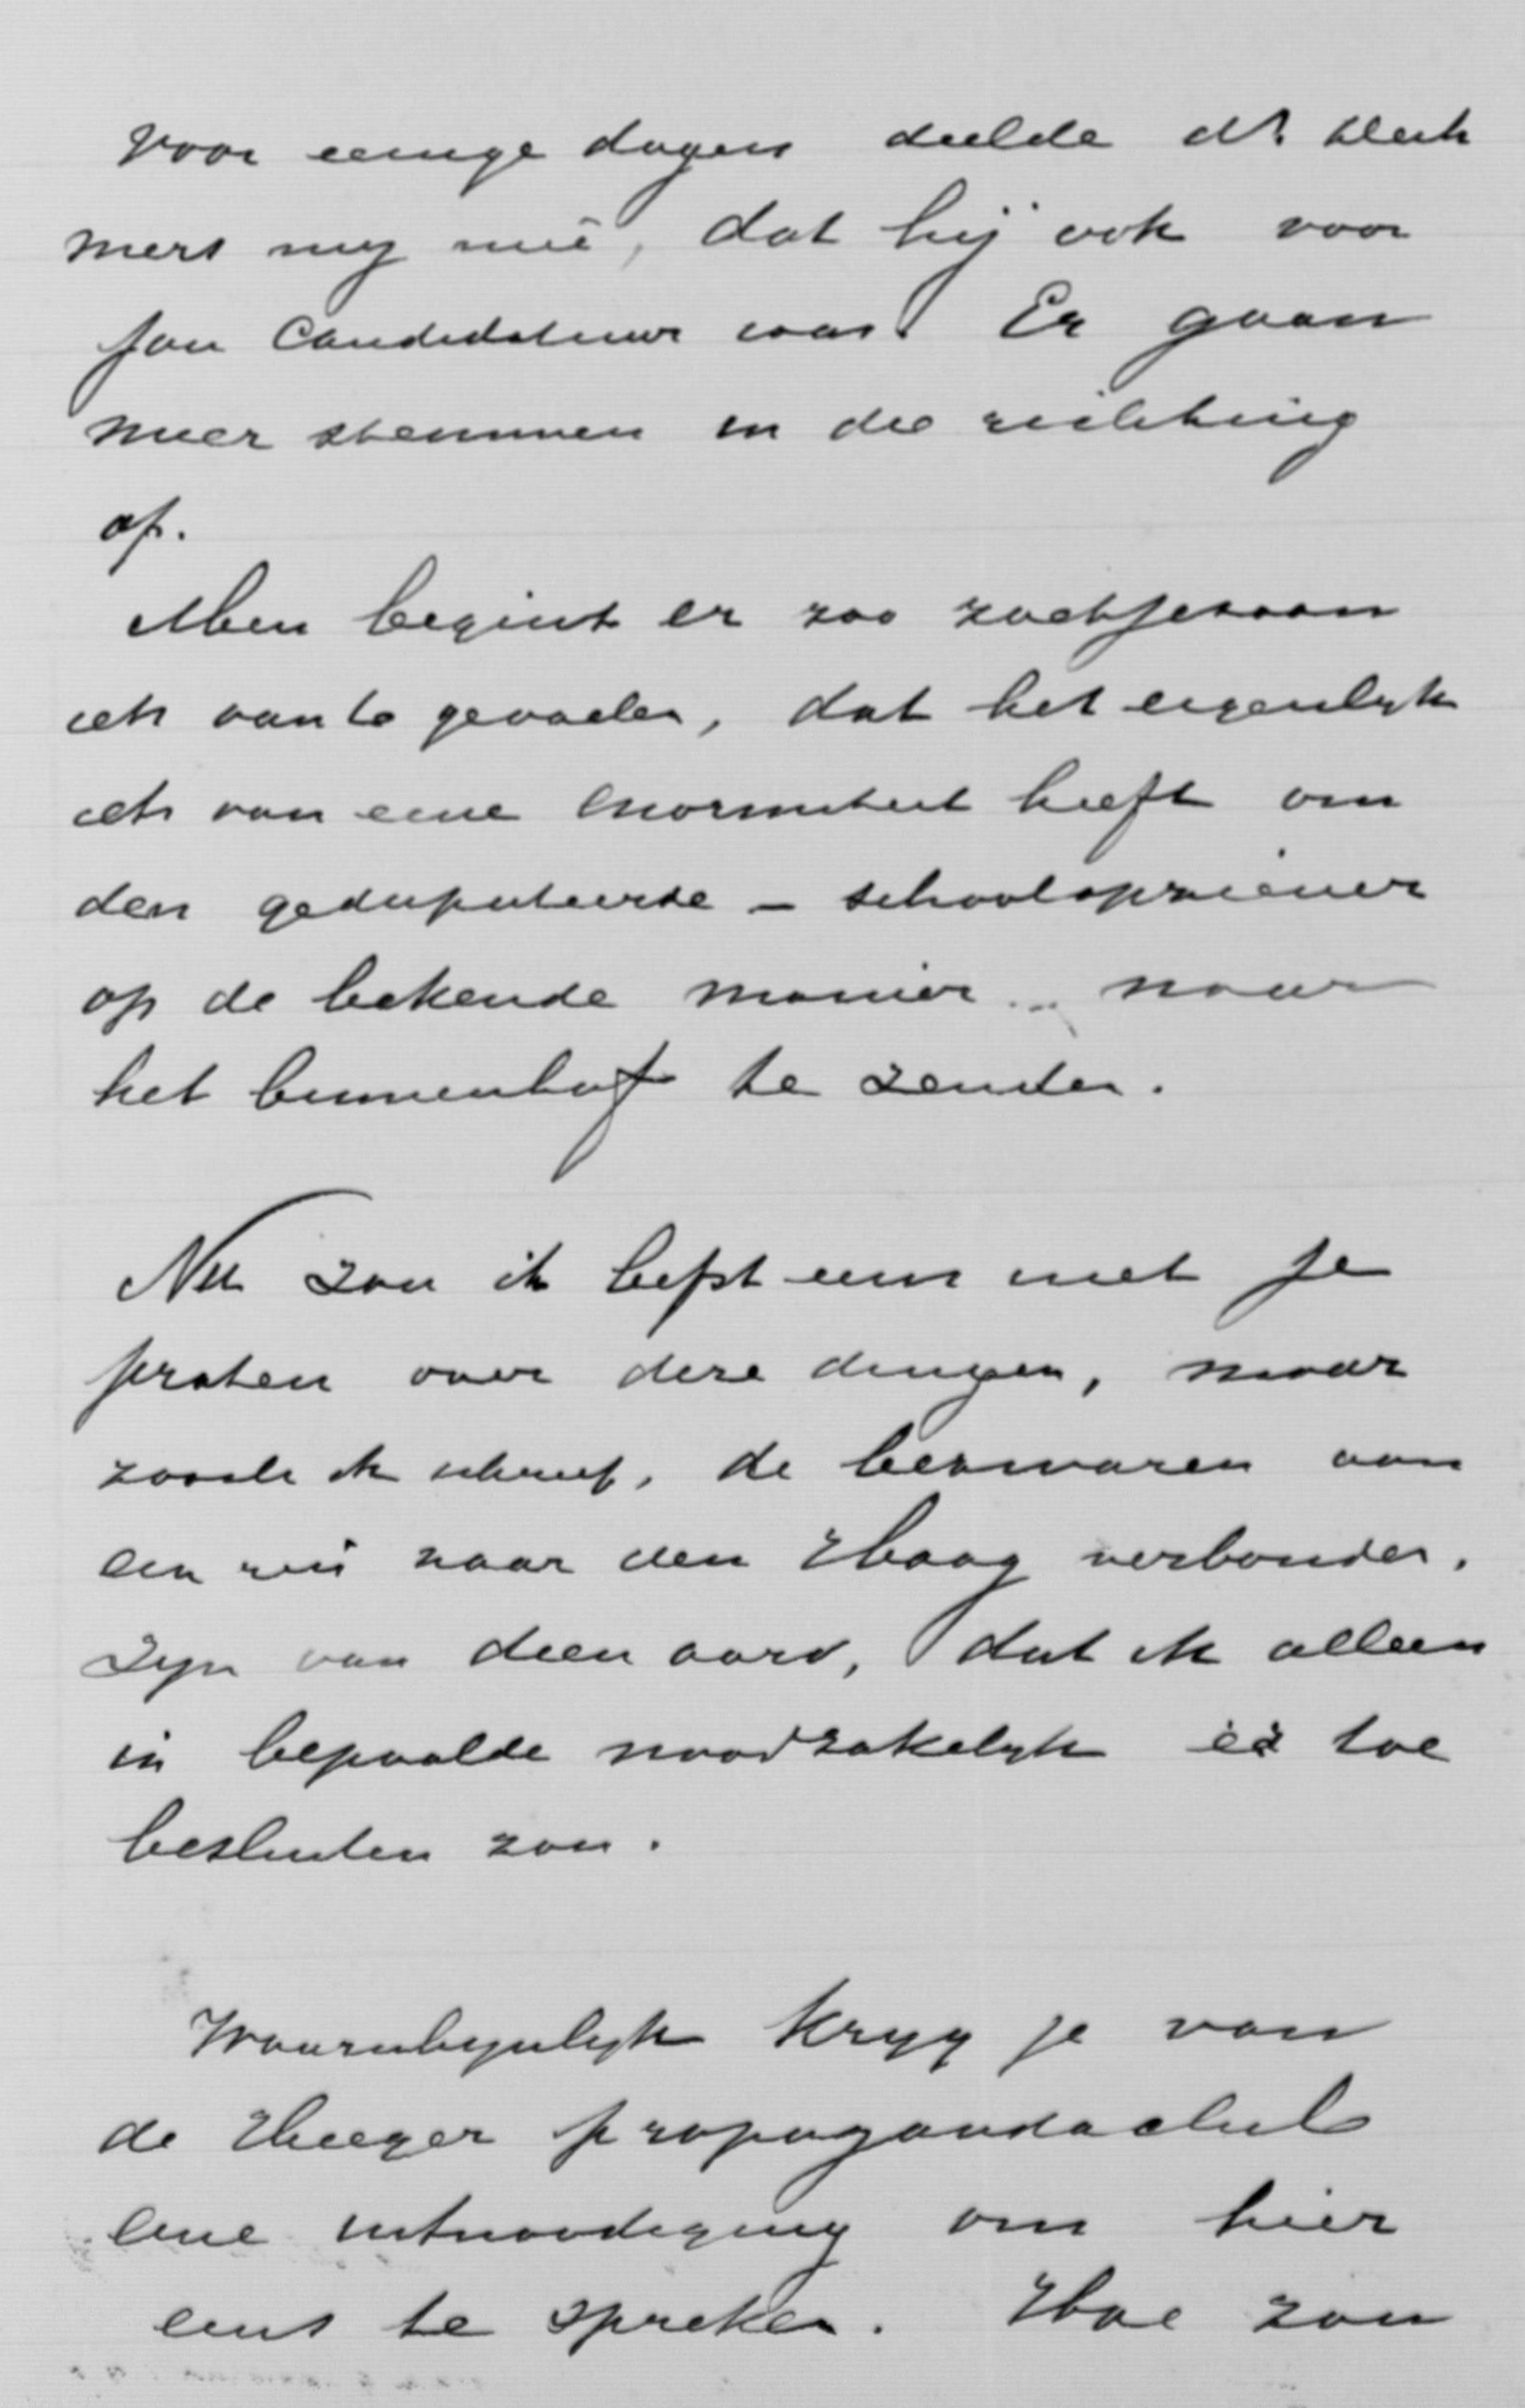 Voor eenige dagen deelde dr. Bleck
mers my mee, dat hij ook voor
jou Candidatuur was. Er gaan
meer stemmen in die richting
op.
Men begint er zoo zachtjesaan
iets van te gevoelen, dat het eigenlyk
iets van eene enormiteit heeft om
den gedeputeerde - schoolopziener
op de bekende manier naar
het binnenhof te zenden.
Nu zou ik liefst eens met je
praten over deze dingen, maar
zooals ik schreef, de bezwaren aan
een reis naar den Haag verbonden,
zyn van dien aard, dat ik alleen
in bepaalde noodzakelijkh. er toe
besluiten zou.
Waarschynlyk kryg je van
de Heeger propagandaclub
eene uitnoodiging om hier
eens te spreken. Hoe zou